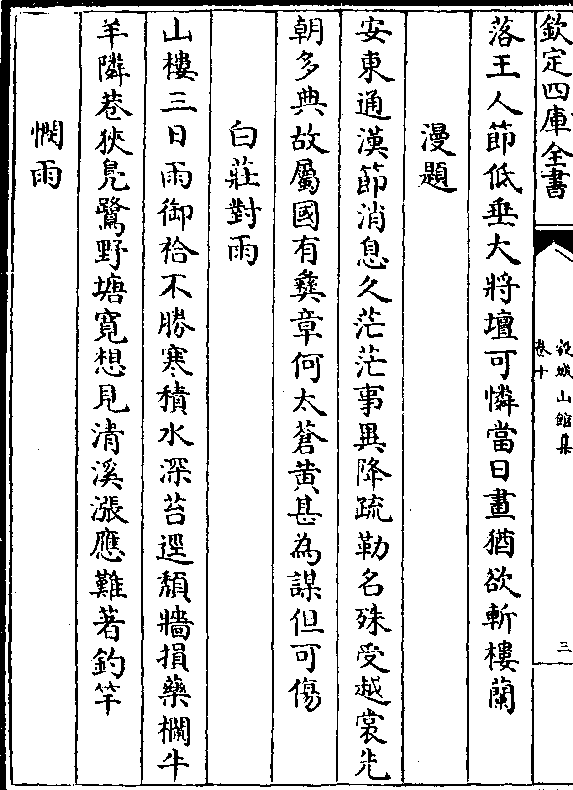 欽定四庫全書
穀城山館集
卷十
三
落王人節低垂大將壇可憐當日畫猶欲斬樓蘭
漫題
安東通漢節消息久茫茫事異降疏勒名殊受越裳先
朝多典故屬國有彝章何太蒼黄甚為謀但可傷
白莊對雨
山樓三日雨御袷不勝寒積水深苔逕頹牆損藥欄牛
羊隣巷狹鳧鷺野塘寛想見清溪漲應難著釣竿
憫雨